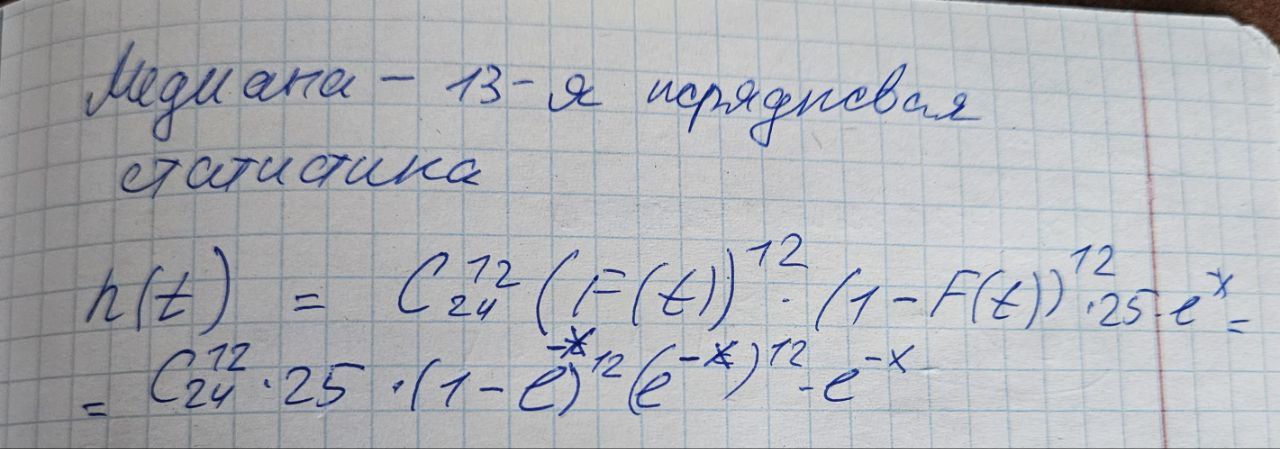 Медиана – 13-я порядковая
статистика
h(t) = C₂₄¹² (F(t))¹² · (1 – F(t))¹² · 25 · eˣ =
= C₂₄¹² · 25 · (1 – e⁻ˣ)¹² (e⁻ˣ)¹² · e⁻ˣ